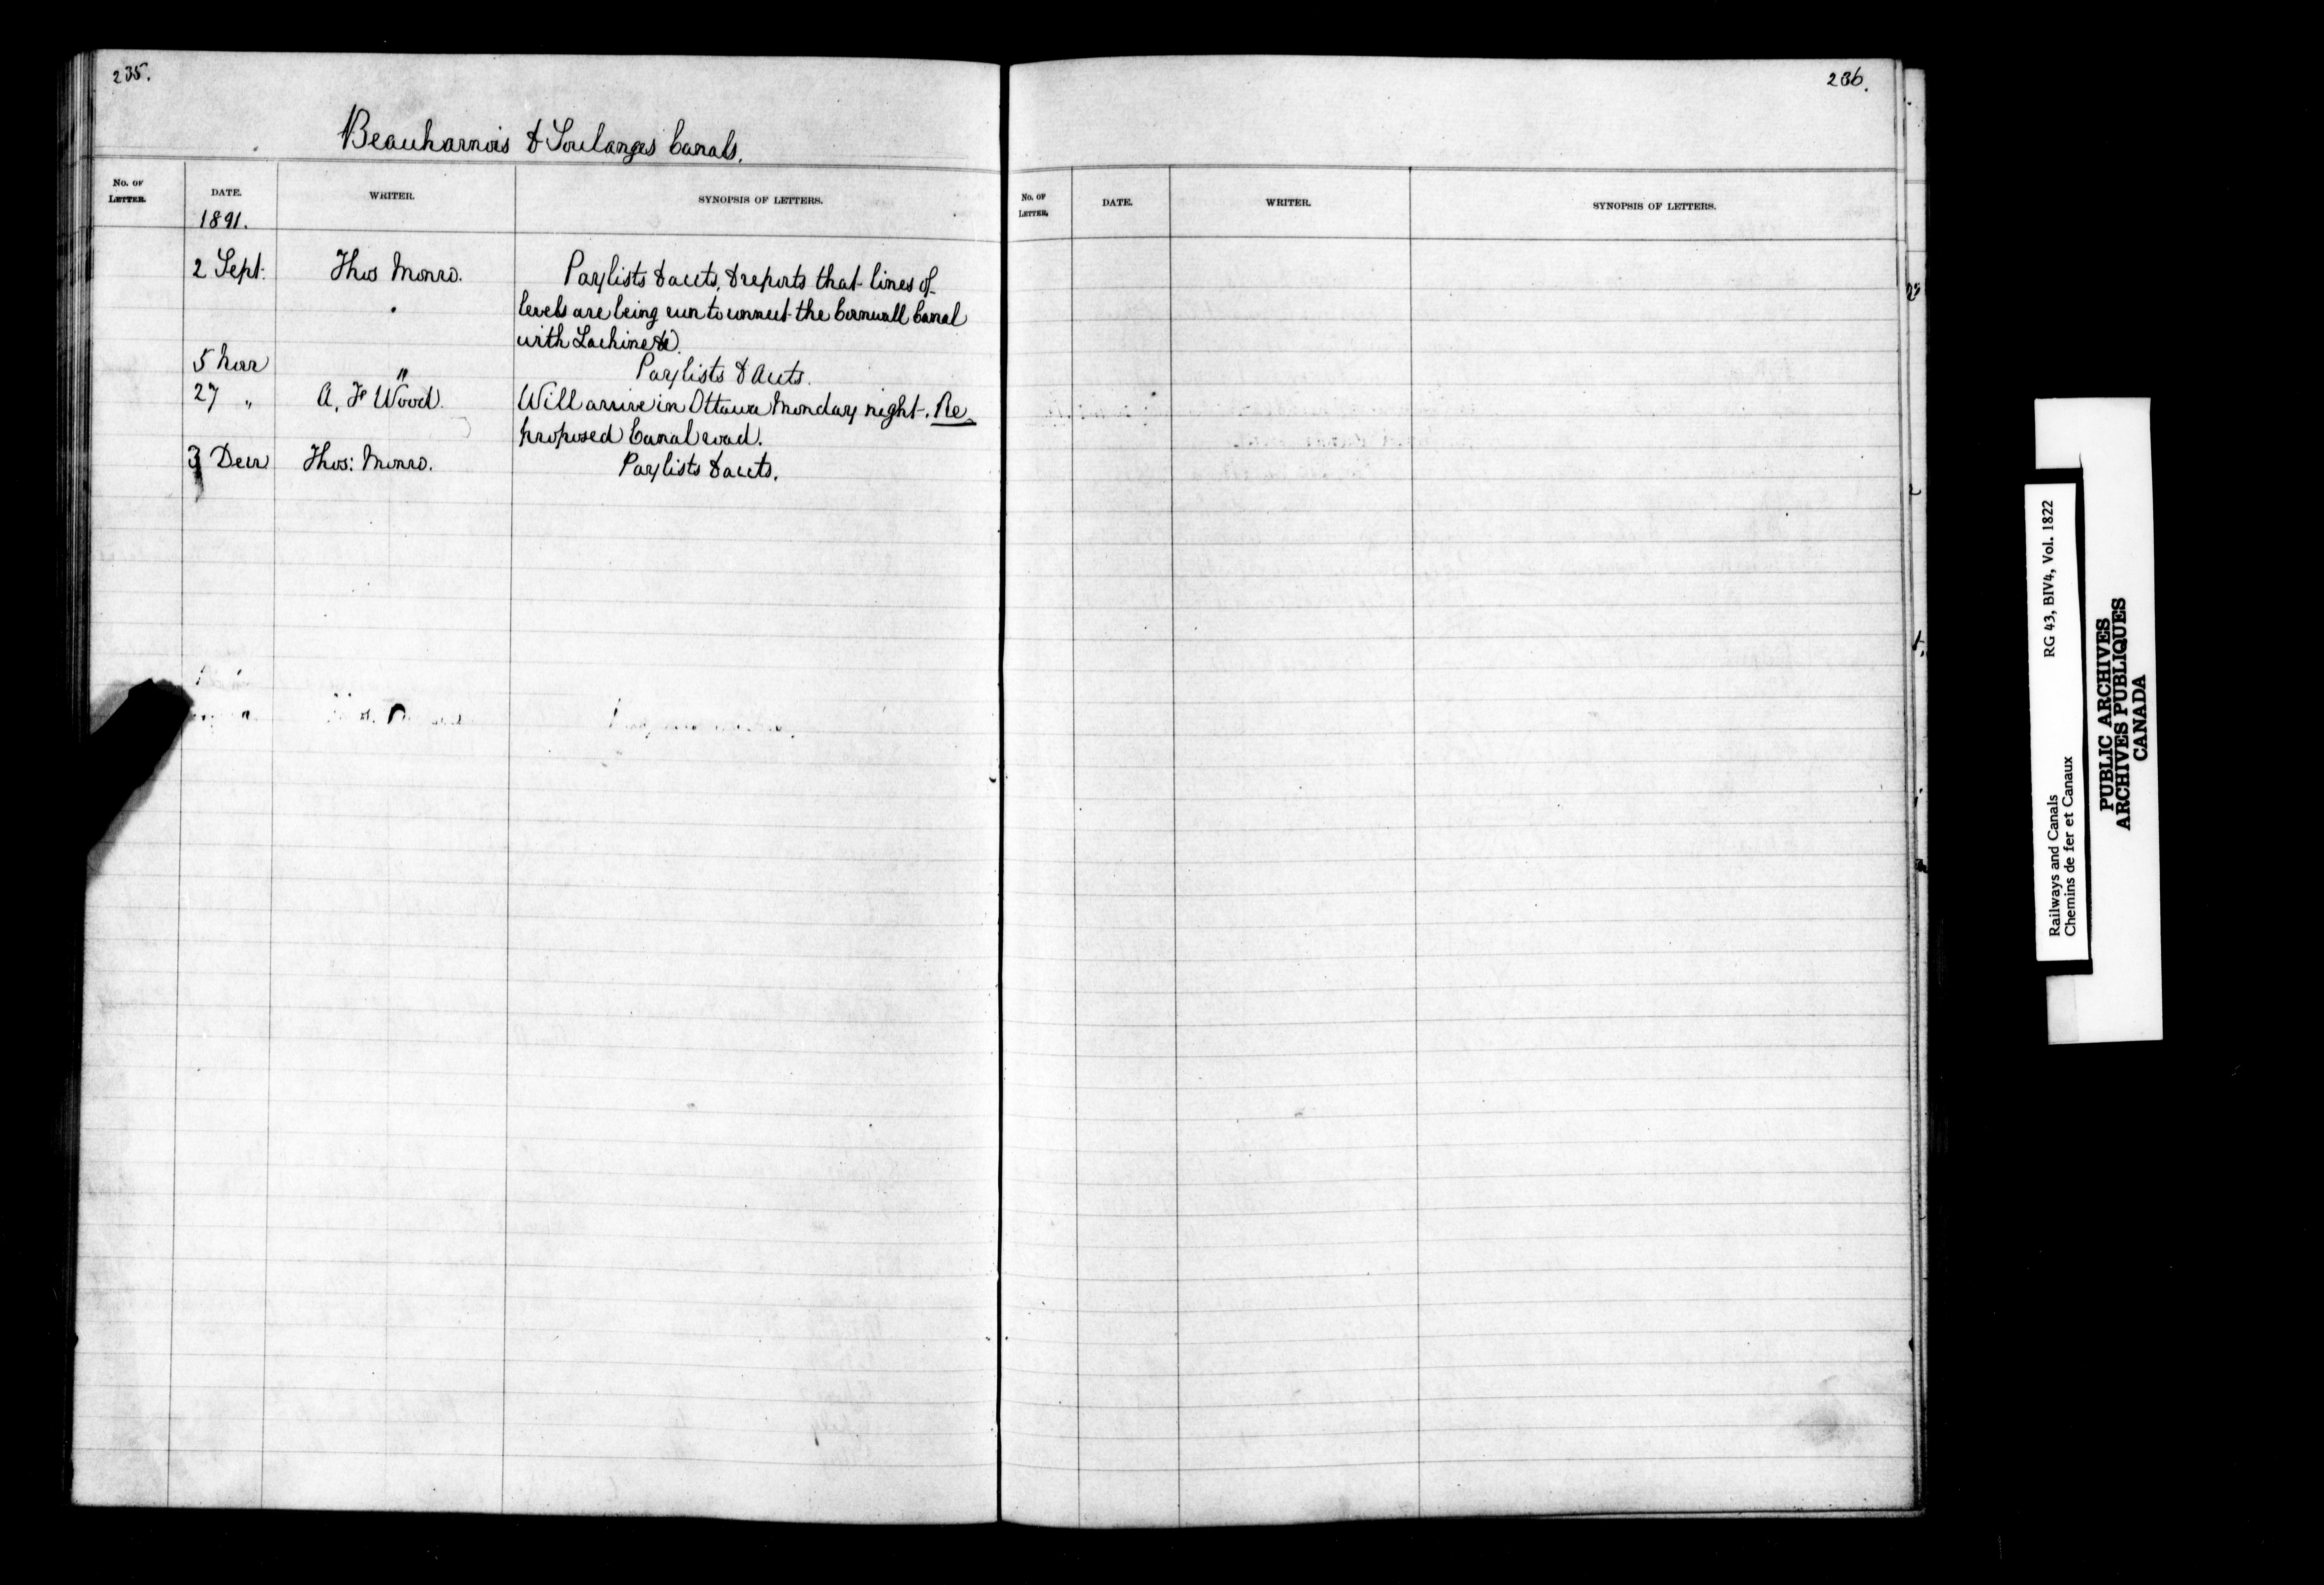 235.
Beauharnois & Soulanges Canals.
No. OF LETTER.
DATE.
WRITER.
SYNOPSIS OF LETTERS.
1891.
2 Sept. Thos Monro. Paylists & accts, & reports that lines of
levels are being run to connect the Cornwall Canal
with Lachine &c.
5 Novr " Paylists & Accts.
27 " A. F Wood. Will arrive in Ottawa Monday night. Re
proposed Canal road.
3 Decr Thos: Monro. Paylists & accts.
236.
No. OF LETTER.
DATE.
WRITER.
SYNOPSIS OF LETTERS.
Railways and Canals RG 43, BIV4, Vol. 1822
Chemins de fer et Canaux
PUBLIC ARCHIVES
ARCHIVES PUBLIQUES
CANADA